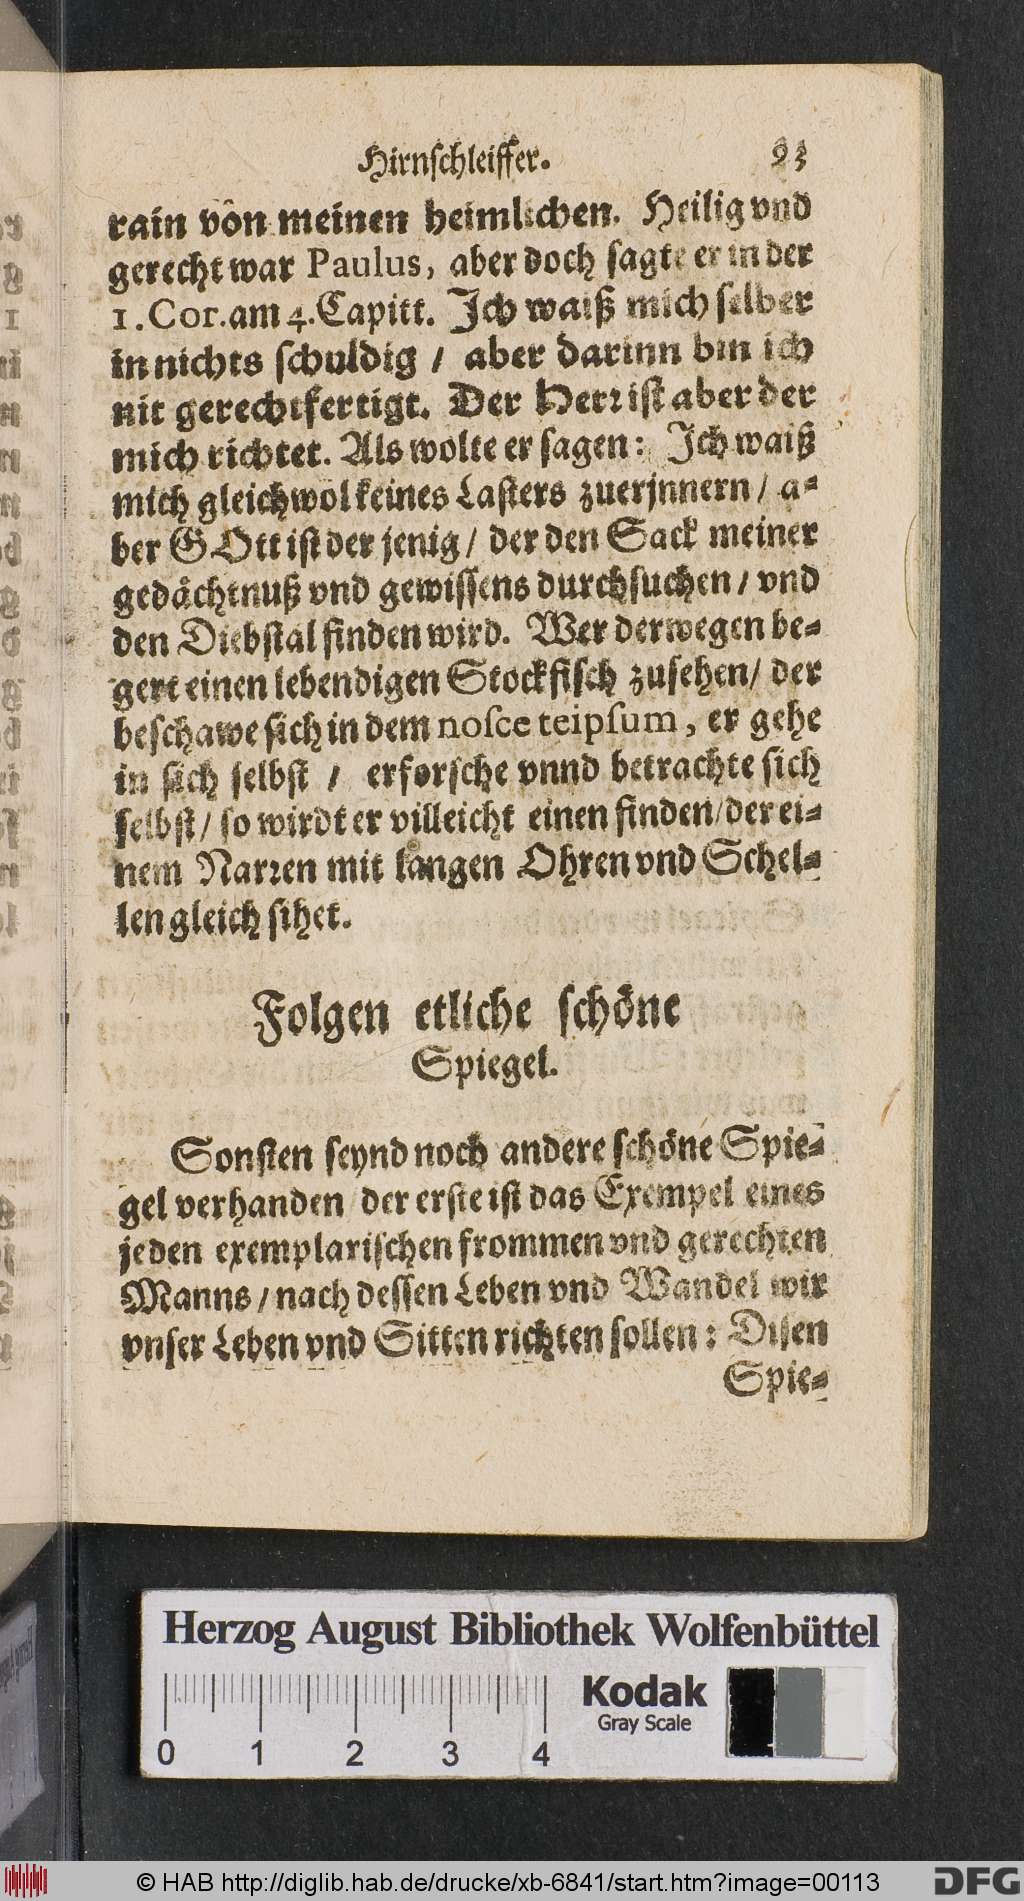 Hirnschleiffer. 93
rain von meinen heimlichen. Heilig vnd
gerecht war Paulus, aber doch sagte er in der
1. Cor. am 4. Capitt. Ich waiß mich selber
in nichts schuldig / aber darinn bin ich
nit gerechtfertigt. Der Herr ist aber der
mich richtet. Als wolte er sagen: Ich waiß
mich gleichwol keines Lasters zuerjnnern / a-
ber GOtt ist der jenig / der den Sack meiner
gedächtnuß vnd gewissens durchsuchen / vnd
den Diebstal finden wird. Wer derwegen be-
gert einen lebendigen Stockfisch zusehen / der
beschawe sich in dem nosce teipsum, er gehe
in sich selbst / erforsche vnnd betrachte sich
selbst / so wirdt er villeicht einen finden / der ei-
nem Narren mit langen Ohren vnd Schel-
len gleich sihet.
Folgen etliche schöne
Spiegel.
Sonsten seynd noch andere schöne Spie-
gel verhanden / der erste ist das Exempel eines
jeden exemplarischen frommen vnd gerechten
Manns / nach dessen Leben vnd Wandel wir
vnser Leben vnd Sitten richten sollen: Disen
Spie-
Herzog August Bibliothek Wolfenbüttel
Kodak
Gray Scale
0 1 2 3 4
© HAB http://diglib.hab.de/drucke/xb-6841/start.htm?image=00113
DFG